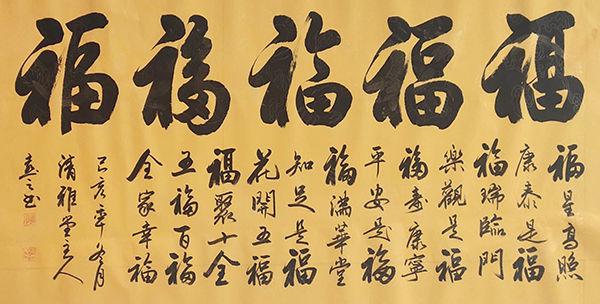 福福福福福
福星高照
康泰是福
福瑞臨門
樂觀是福
福壽康寧
平安是福
福滿華堂
知足是福
花開五福
福聚十全
五福百福
全家幸福
己亥年冬月
清雅堂主人